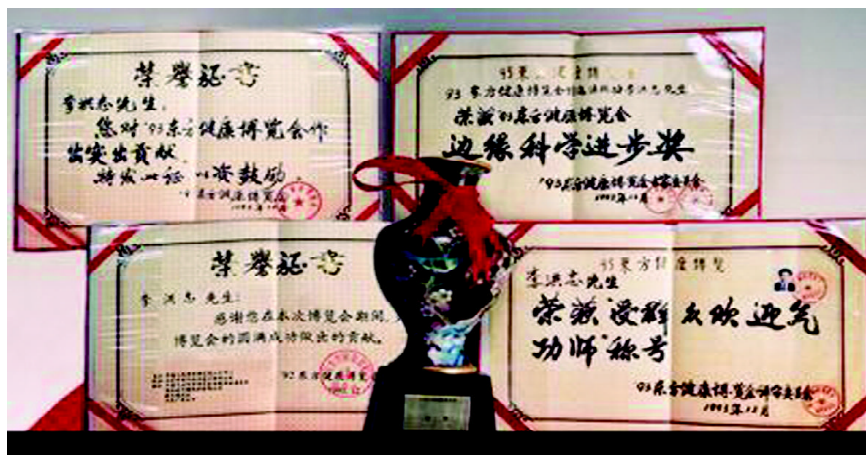 荣誉证书
李洪志先生:
您对'93东方健康博览会作
出突出贡献,
特发此证 以资鼓励。
93东方健康博览会
荣获'93东方健康博览会
边缘科学进步奖
1993年12月
荣誉证书
李洪志先生:
感谢您在本次博览会期间,
博览会的圆满成功做出的贡献。
'92东方健康博览会
93东方健康博览
李洪志先生
荣获"受群众欢迎气
功师"称号
93东方健康博览会评审委员会
1993年12月